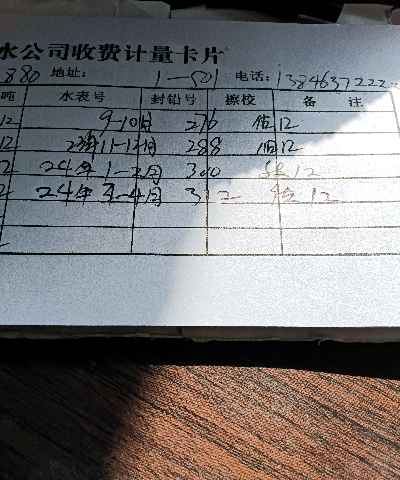 水公司收费计量卡片
880 地址: 1-501 电话: 1384637222
吨 水表号 封铅号 擦校 备 注
12 9-10月 276 值12
12 23年11-12月 288 值12
2 24年1-2月 300 12
2 24年3-4月 312 12